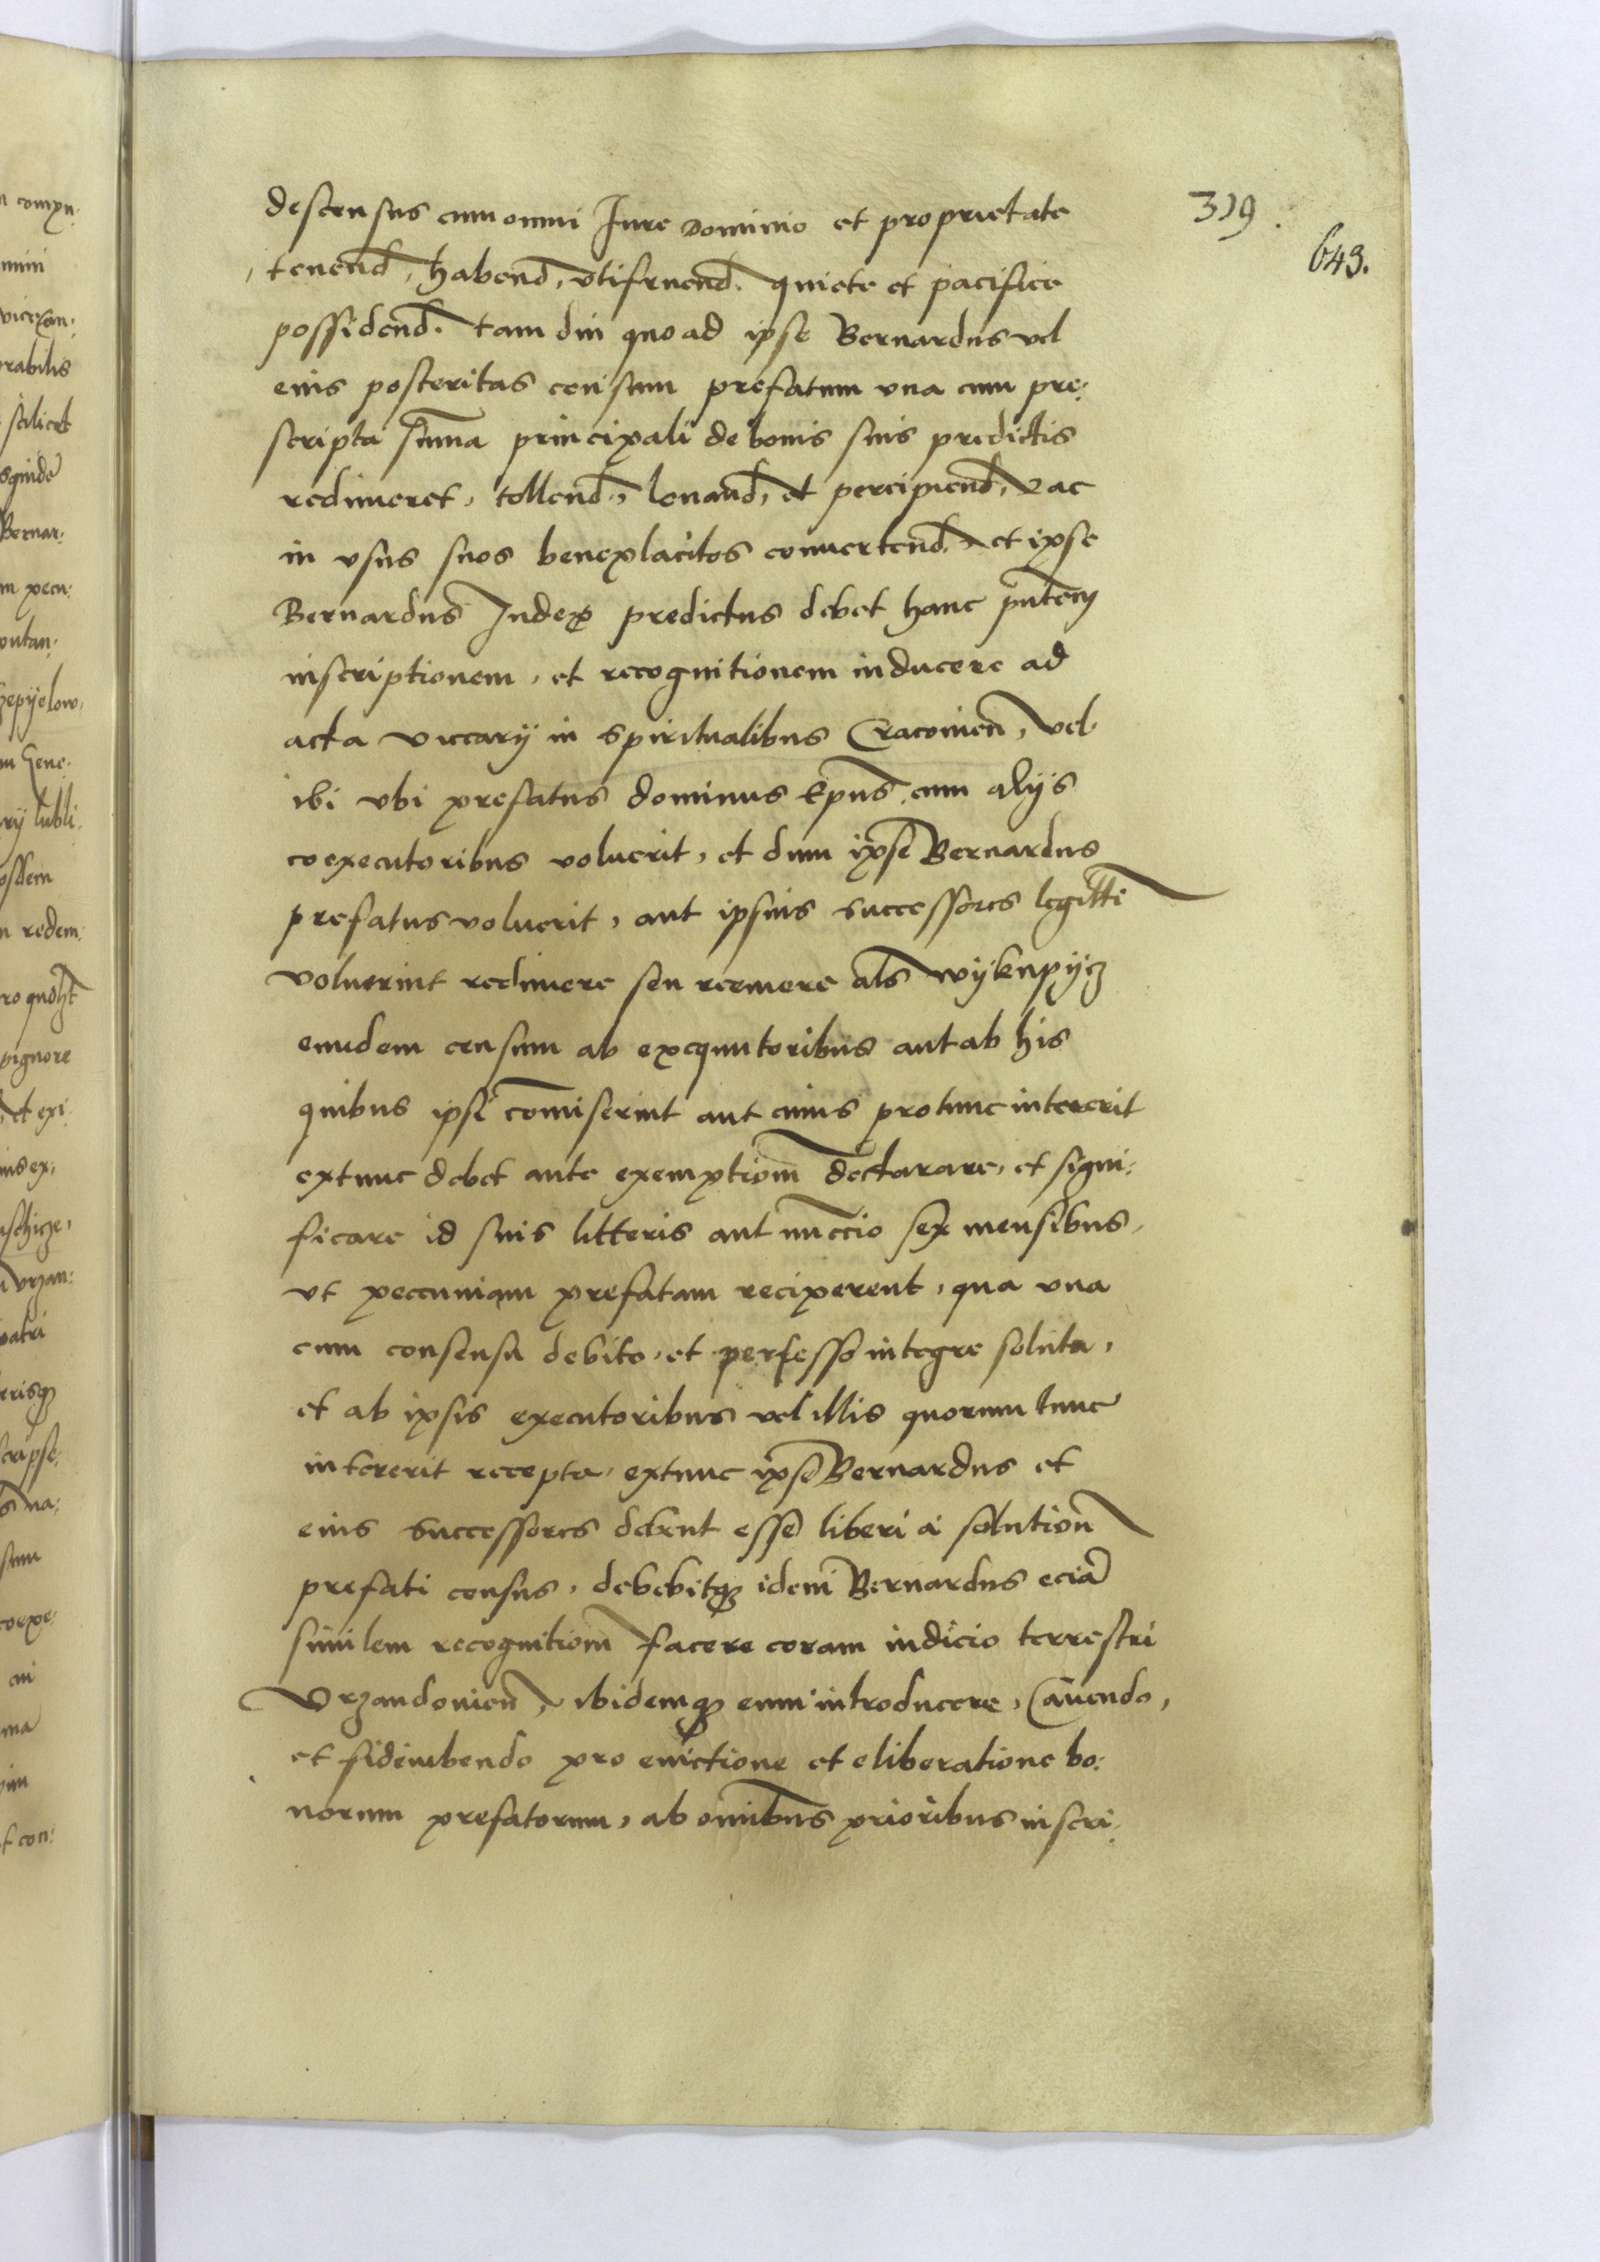 descensus cum omni Iure Dominio et proprietate
319.
643.
tenend, habend, vtifruend. quiete et pacifice
possidend. tam diu quoad ipse Bernardus vel
eius posteritas censum prefatum vna cum pre:
scripta suma principali de bonis suis predictis
redimeret, tollend, leuand, et percipiend, ac
in vsus suos beneplacitos conuertend. et ipse
Bernardus Iudex predictus debet hanc pntem
inscriptionem, et recognitionem inducere ad
acta viccarij in spiritualibus Cracouien, vel
ibi vbi prefatus dominus Epus cum alijs
coexecutoribus voluerit, et dum ipse Bernardus
prefatus voluerit, aut ipsius successores legitti
voluerint redimere seu reemere als wijkupijcz
eundem censum ab exequutoribus aut ab his
quibus ipsi comiserint aut cuius protunc intererit
extunc debet ante exemptiom declarare, et signi:
ficare id suis litteris aut nuccio sex mensibus,
vt peccuniam prefatam reciperent, qua vna
cum consensu debito, et perfesso integre soluta,
et ab ipsis executoribus vel illis quorum tunc
intererit recepta, extunc ipse Bernardus et
eius successores debent esse liberi a solution
prefati census, debebitq idem Bernardus ecia
similem recognitiom facere coram iudicio terrestri
Vrzandouien, ibidemq eum introducere, Cauendo,
et fideiubendo pro euictione et eliberatione bo:
norum prefatorum, ab omibus prioribus inscri: